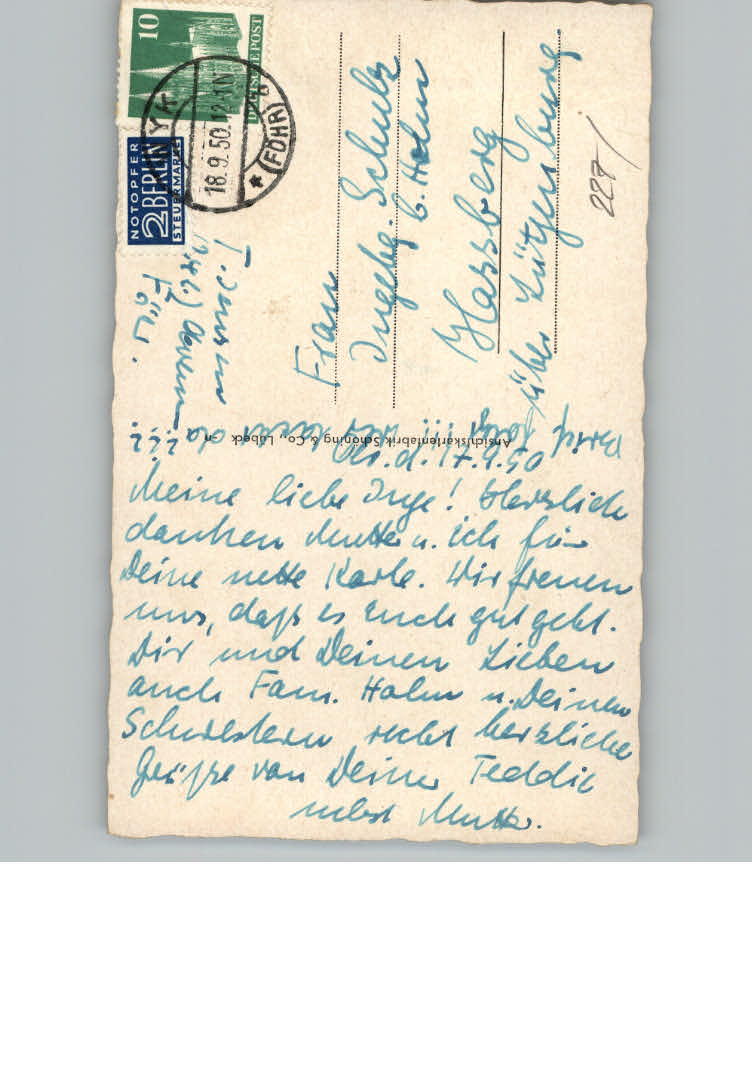 10
DEUTSCHE POST
NOTOPFER
2 BERLIN
STEUERMARKE
WYK
(FÖHR)
18.9.50.12
Frau
Ingebg. Schulz
b. Holm
Hassberg
über Lütjenburg.
228/
Föhr.
Ansichtskartenfabrik Schöning & Co., Lübeck
d. 17.9.50
Meine liebe Inge! Herzlich
danken Mutter u. ich für
Deine nette Karte. Wir freuen
uns, daß es Euch gut geht.
Dir und Deinen Lieben
auch Fam. Holm u. Deinen
Schwestern recht herzliche
Grüße von Deiner Teddie
nebst Mutter.